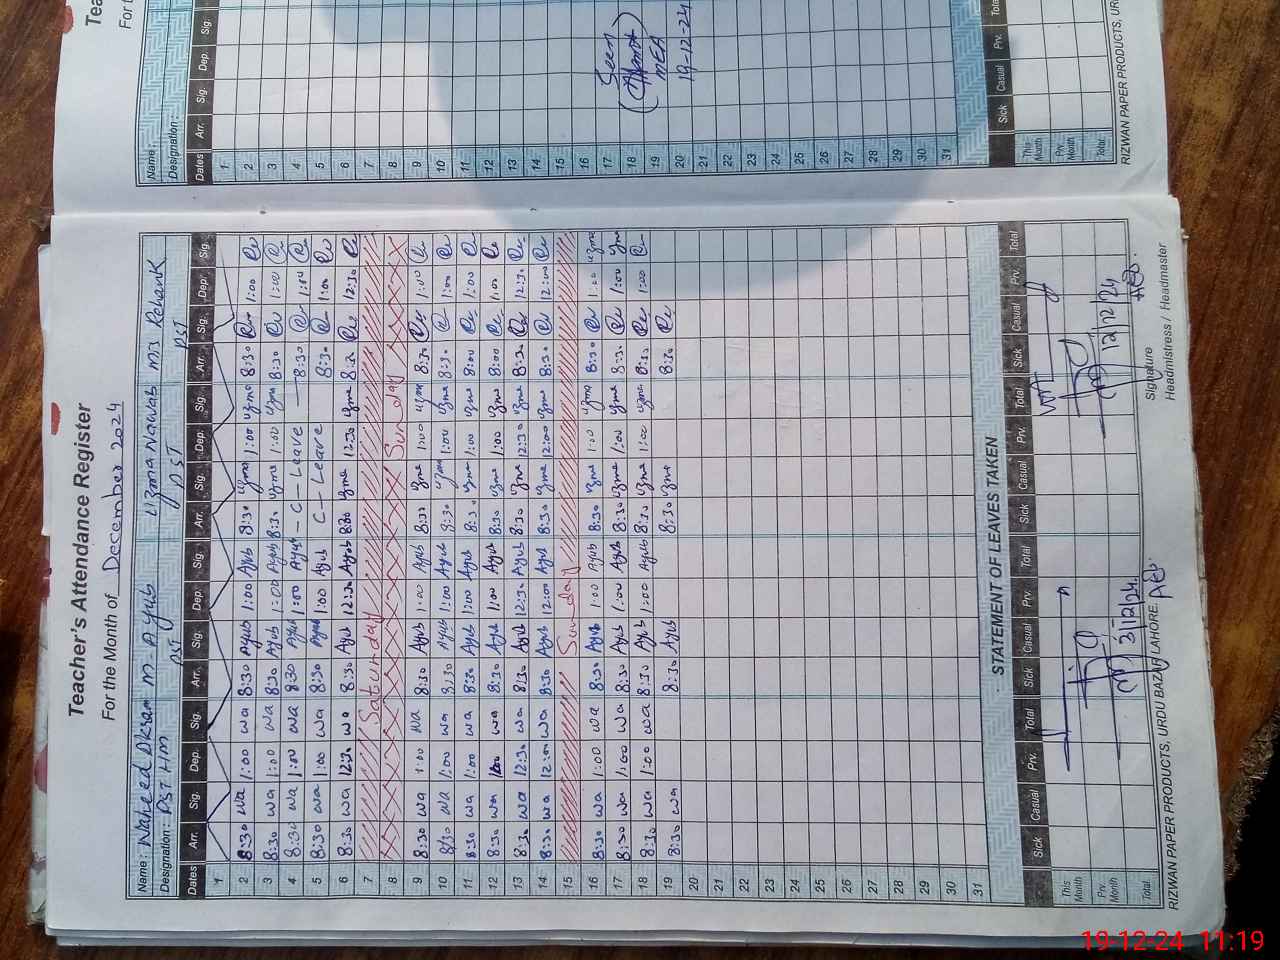 Teacher's Attendance Register
For the Month of December 2024
Name: Waheed Akram M-Ayub Uzma Nawab
Designation: PST HM PST PST PST
Dates Arr. Sig. Dep. Sig. Arr. Sig. Dep. Sig. Arr. Sig. Dep. Sig. Arr. Sig. Dep. Sig.
1
2 8:30 wa 1:00 wa 8:30 Ayub 1:00 Ayub 8:30 uzma 1:00 uzma 8:30 1:00
3 8:30 wa 1:00 wa 8:30 Ayub 1:00 Ayub 8:30 uzma 1:00 uzma 8:30 1:00
4 8:30 wa 1:00 wa 8:30 Ayub 1:00 Ayub - C - Leave 8:30 1:00
5 8:30 wa 1:00 wa 8:30 Ayub 1:00 Ayub C - Leave 8:30 1:00
6 8:30 wa 12:30 wa 8:30 Ayub 12:30 Ayub 8:30 uzma 12:30 uzma 8:30 12:30
7 Saturday
8 Sunday
9 8:30 wa 1:00 wa 8:30 Ayub 1:00 Ayub 8:30 uzma 1:00 uzma 8:30 1:00
10 8:30 wa 1:00 wa 8:30 Ayub 1:00 Ayub 8:30 uzma 1:00 uzma 8:30 1:00
11 8:30 wa 1:00 wa 8:30 Ayub 1:00 Ayub 8:30 uzma 1:00 uzma 8:00 1:00
12 8:30 wa 1:00 wa 8:30 Ayub 1:00 Ayub 8:30 uzma 1:00 uzma 8:00 1:00
13 8:30 wa 12:30 wa 8:30 Ayub 12:30 Ayub 8:30 uzma 12:30 uzma 8:30 12:30
14 8:30 wa 12:00 wa 8:30 Ayub 12:00 Ayub 8:30 uzma 12:00 uzma 8:30 12:00
15 Sunday
16 8:30 wa 1:00 wa 8:30 Ayub 1:00 Ayub 8:30 uzma 1:00 uzma 8:30 1:00 uzma
17 8:30 wa 1:00 wa 8:30 Ayub 1:00 Ayub 8:30 uzma 1:00 uzma 8:30 1:00 uzma
18 8:30 wa 1:00 wa 8:30 Ayub 1:00 Ayub 8:30 uzma 1:00 uzma 8:30 1:00
19 8:30 wa 8:30 Ayub 8:30 uzma 8:30
20
21
22
23
24
25
26
27
28
29
30
31
STATEMENT OF LEAVES TAKEN
Sick Casual Prv. Total Sick Casual Prv. Total Sick Casual Prv. Total Sick Casual Prv. Total
This Month
Prv. Month
Total
3/12/24
12/12/24
RIZWAN PAPER PRODUCTS, URDU BAZAR LAHORE.
Signature
Headmistress / Headmaster
Name:
Designation:
Dates Arr. Sig. Dep. Sig.
1
2
3
4
5
6
7
8
9
10
11
12
13
14
15
16
17
18
19
20
21
22
23
24
25
26
27
28
29
30
31
Seen
MEA
19-12-24
Sick Casual Prv. Total
This Month
Prv. Month
Total
RIZWAN PAPER PRODUCTS, UR
Tea
For t
19-12-24 11:19